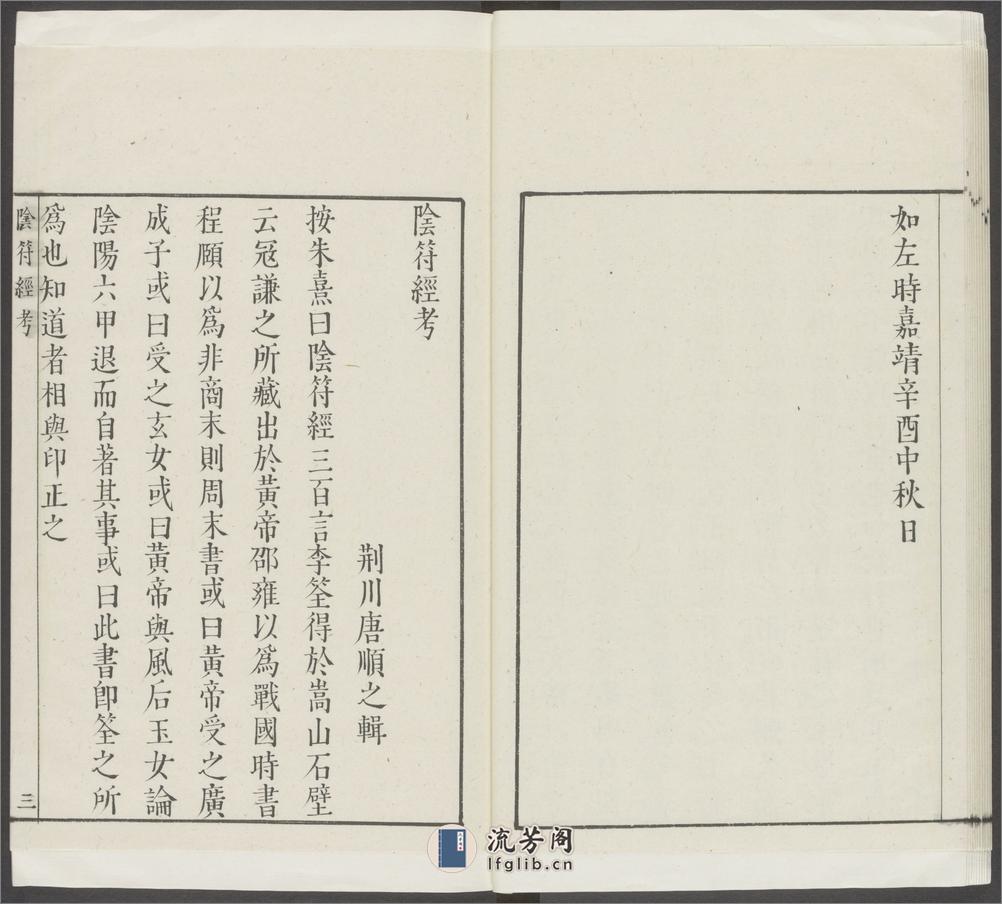 如左時嘉靖辛酉中秋日
陰符經考
荆川唐順之輯
按朱熹曰陰符經三百言李筌得於嵩山石壁
云冦謙之所藏出於黃帝邵雍以爲戰國時書
程頤以爲非商末則周末書或曰黃帝受之廣
成子或曰受之玄女或曰黃帝與風后玉女論
陰陽六甲退而自著其事或曰此書卽筌之所
爲也知道者相與印正之
陰符經考
三
流芳阁
lfglib.cn